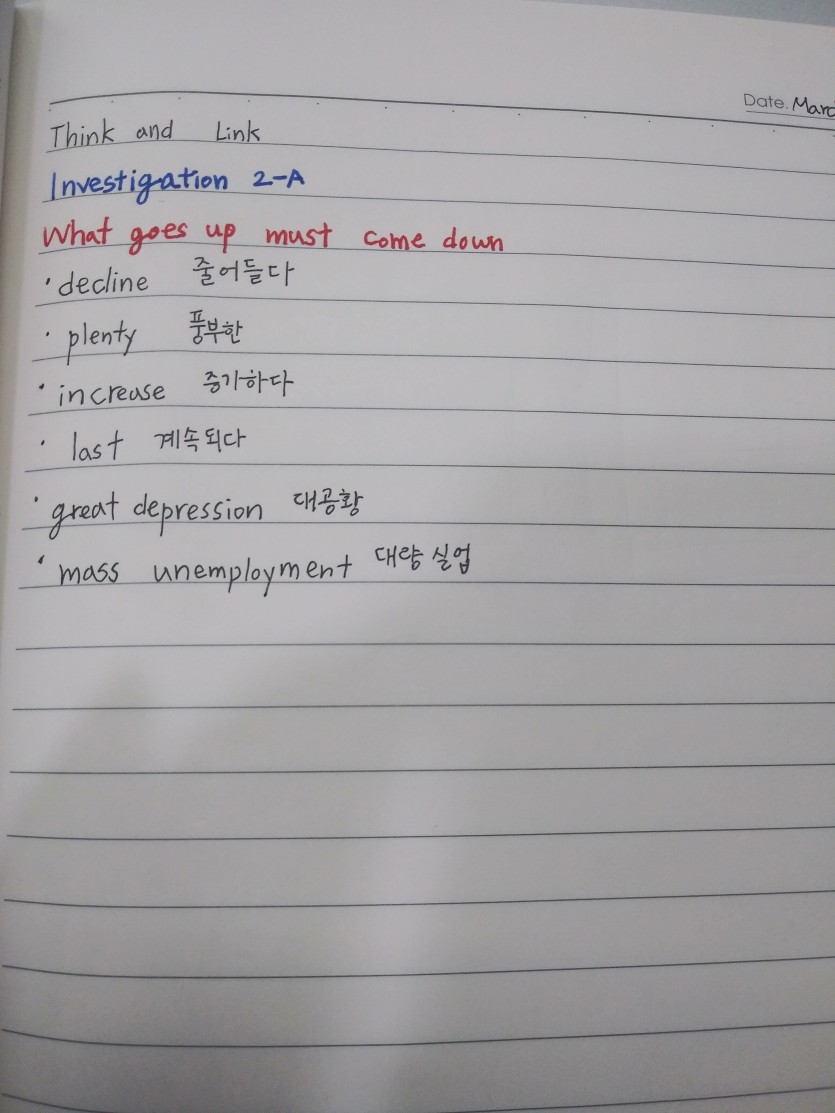 Date.
Think and Link
Investigation 2-A
What goes up must come down
· decline 줄어들다
· plenty 풍부한
· increase 증가하다
· last 계속되다
· great depression 대공황
· mass unemployment 대량 실업